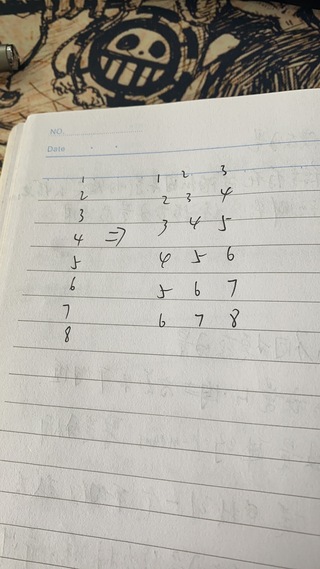 NO.
Date
1 1 2 3
2 2 3 4
3 3 4 5
4 => 4 5 6
5 5 6 7
6 6 7 8
7
8